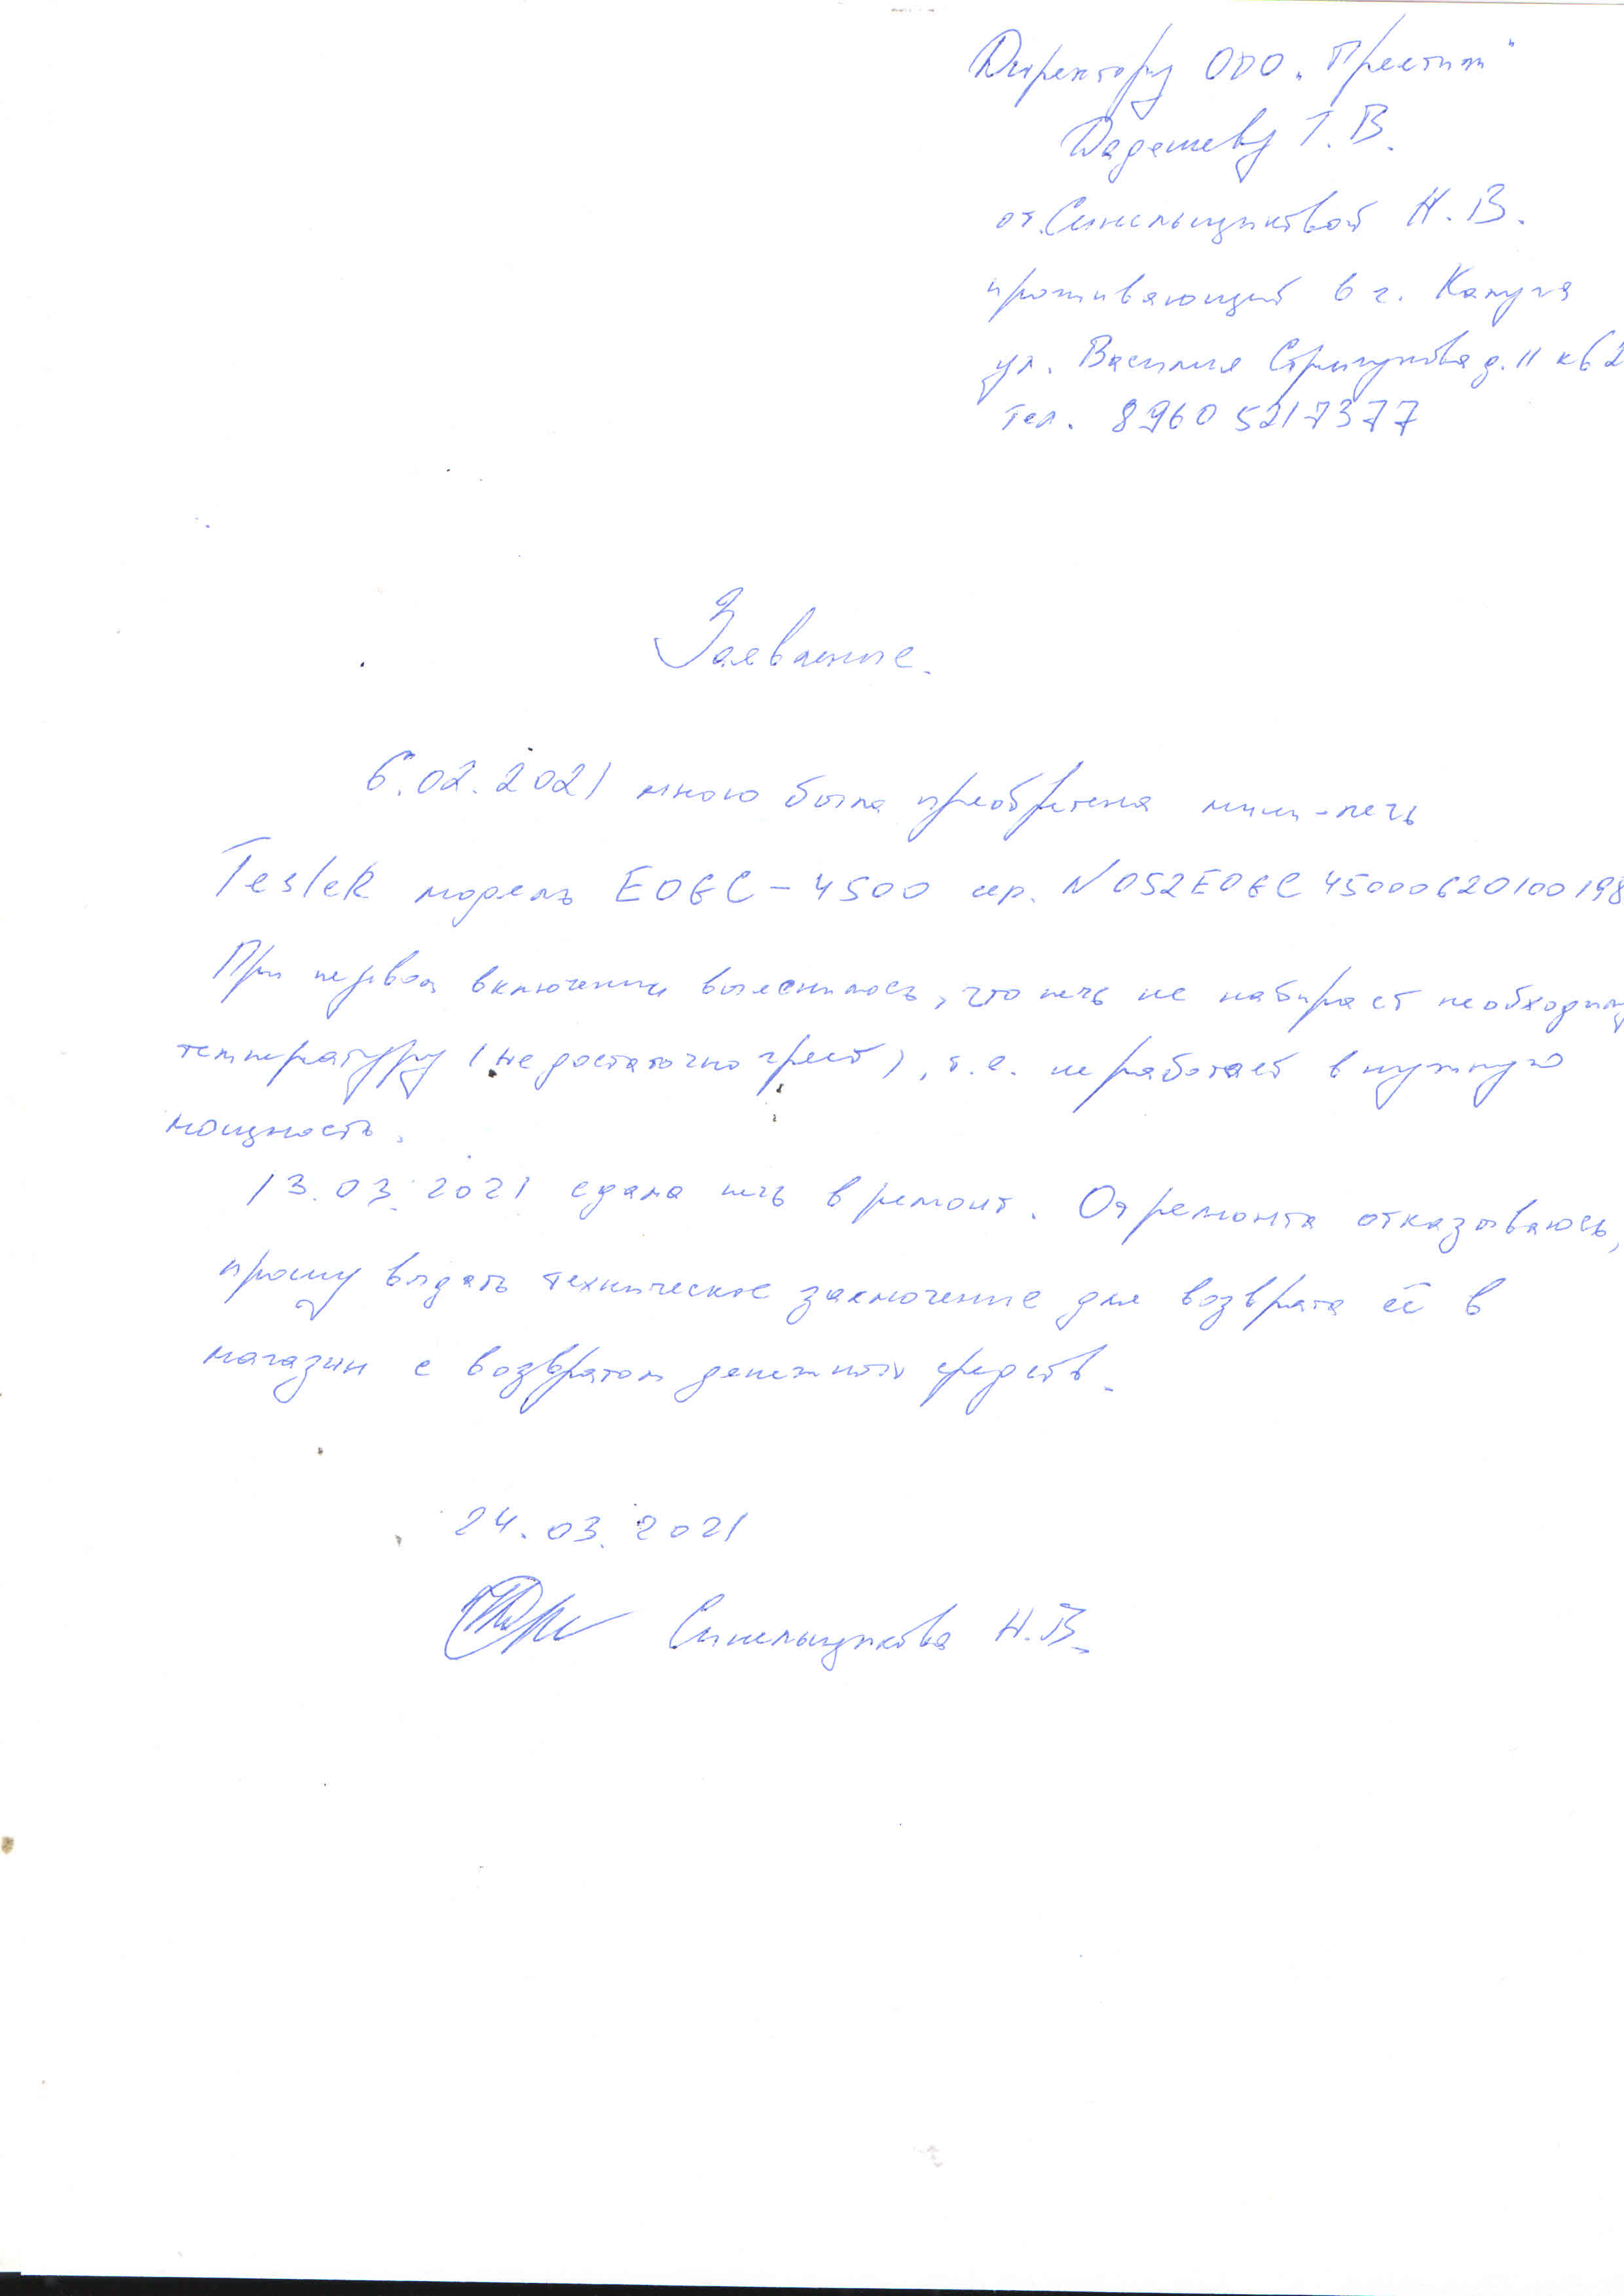 Директору ООО "Престиж"
Дадешеву Т.В.
от Синельщиковой Н.В.
проживающий в г. Калуга
ул. Василия Стригункова д. 11 кв 2
тел. 8960 5217377
Заявление.
6.02.2021 мною была преобретена мини-печь
TesleR модель EOGC-4500 сер. N052EOGC45000620100198
При первом включении выяснилось, что печь не набирает необходиму
температуру (не достаточно греет), т.е. не работает в нужную
мощность.
13.03.2021 сдала печь в ремонт. От ремонта отказываюсь,
прошу выдать техническое заключение для возврата её в
магазин с возвратом денежных средств.
24.03.2021
Синельщикова Н.В.